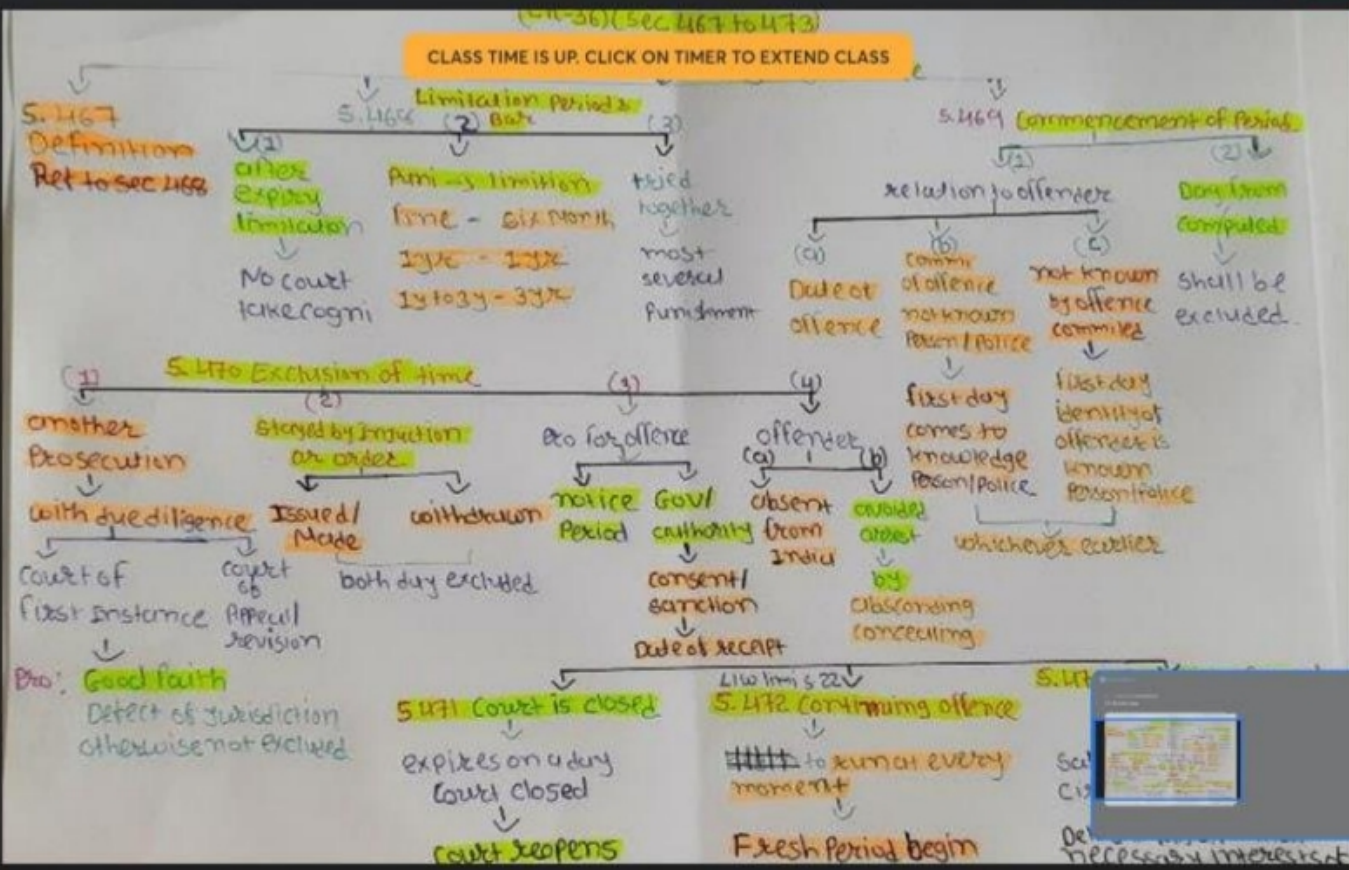 (Ch-36)(Sec 467 to 473)
CLASS TIME IS UP. CLICK ON TIMER TO EXTEND CLASS
S. 467
Definition
Ret to sec 468
S.468 Limitation Periods
Bar
(1)
after
expiry
limitation
No court
take cogni
(2)
limition
fine - six Month
1yr - 1yr
1y to 3y - 3yr
(3)
tried
together
most
several
Punishment
S.469 Commencement of Period
(1)
relation to offender
(a)
Date of
offence
(b)
Comm.
of offence
not known
Person/Police
first day
comes to
knowledge
Person/police
(c)
not known
by offence
commited
first day
identity of
offender is
known
Person/Police
whichever earlier
(2)
Day from
Computed
shall be
excluded.
S.470 Exclusion of time
(1)
another
Prosecution
with due diligence
court of
first Instance
court
of
Appeal/
revision
Pro: Good faith
Defect of Jurisdiction
otherwise not excluded
(2)
Stayed by Injuction
or order
Issued/
Made
withdrawn
both day excluded
(3)
Pro for offence
notice
Period
Gov/
authority
consent/
sanction
Date of receipt
(4)
offender
(a)
absent
from
India
(b)
avoided
arrest
by
absconding
concealing
S 471 Court is closed
expires on a day
Court closed
Court reopens
S. 472 Continuing offence
to run at every
moment
Fresh Period begin
S.47
necessary interests of